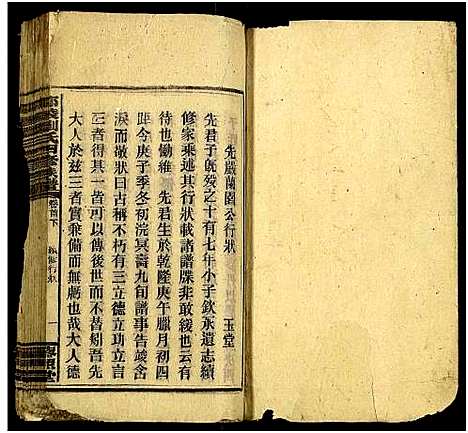 先嚴蘭園公行狀
玉堂
先君子既殁之十有七年小子欽承遺志續
修家乘述其行狀載諸譜牒非敢緩也云有
待也慟維　先君生於乾隆庚午臘月初四
距今庚子季冬初浣冥壽九旬譜事告竣含
淚而敬狀曰古稱不朽有三立德立功立言
三者得一已可以傳後世而不替矧吾先
大人於茲三者實兼備而無虧也哉大人德
族譜
卷首下
行狀
一
堂